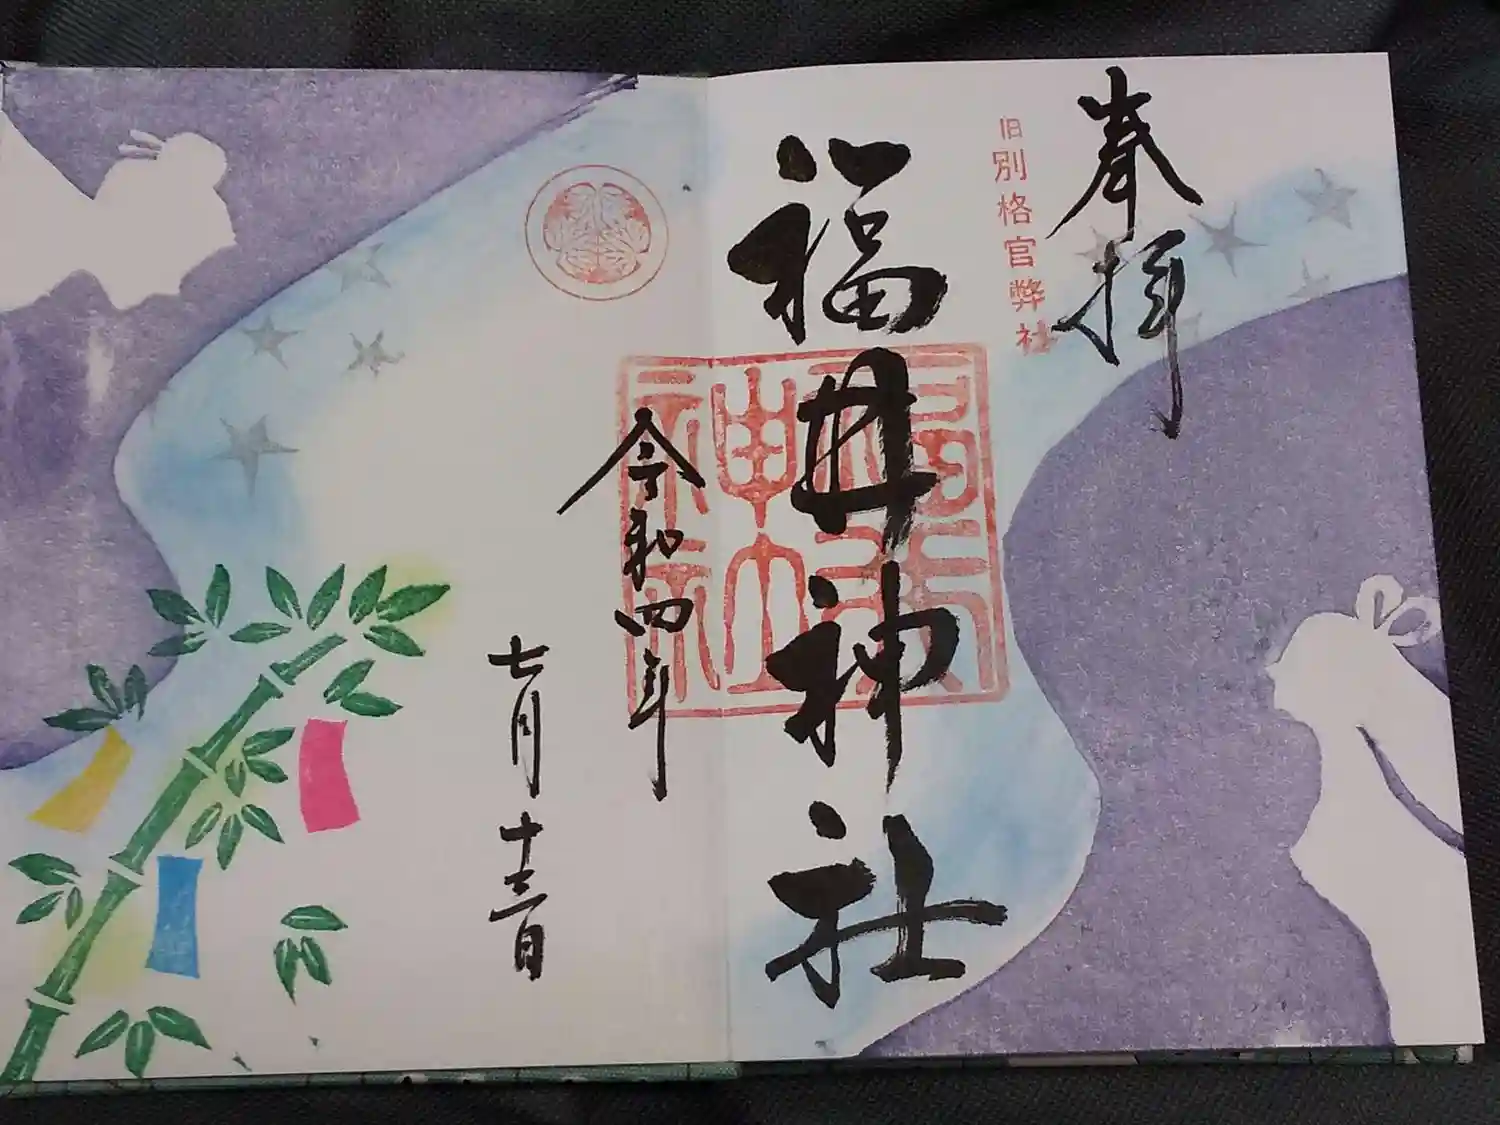 奉拝
旧別格官弊社
福井神社
福井神社
令和四年
七月十三日